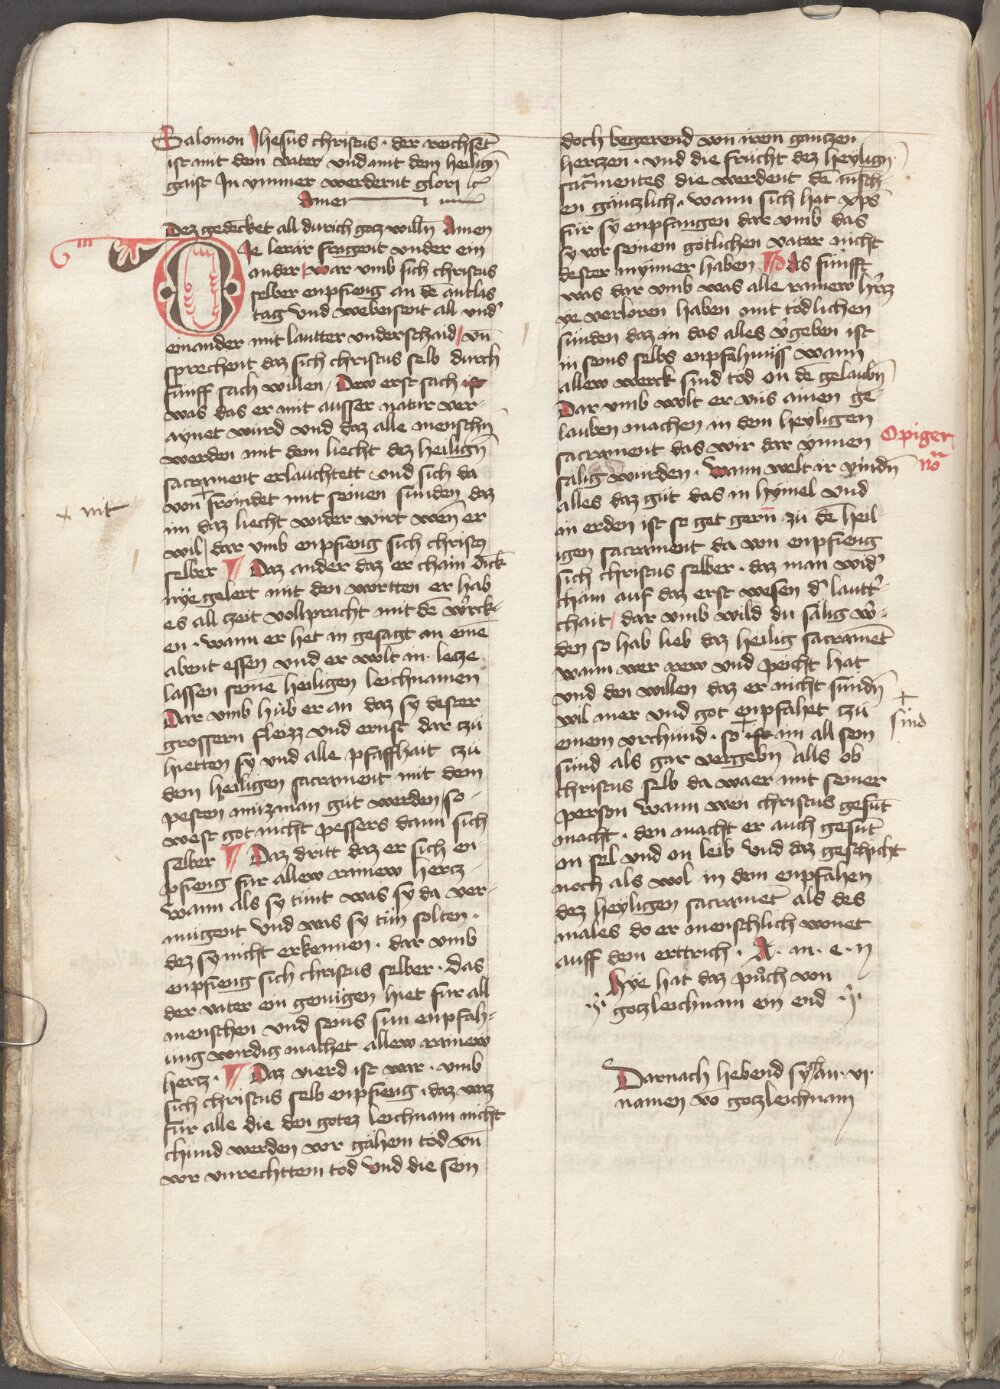 Salomon Jhesus christus · der reichset
ist mit dem vater vnd mit dem heilign̄
gaist Jn ymmer werdernt glori ꝛc̄
Amen
Dez gedencket all durich gocz willn̄ Amen
Die lerär fragent vnder ein
ander / war vmb sich christus
selber enpfieng an dē antlas
tag Vnd webeisent all vnd'
einander mit lautter vnderschaid / vn̄
sprechent daz sich christus selb durch
fünff sach willen / Dew erst sach ist
was das er mit ausser natur ver-
aynet würd vnd daz alle menschn̄
werden mit dem liecht dez heilign̄
sacrament erlauchtett · vnd sich da
von frömdet mit seinen sünden daz
im daz liecht wider wirt wen̄ er
+ nit
wil / dar vmb enpfieng sich christus
selber ¶ Daz ander daz er chain dinck
nye gelert mit den wortten er hab
es all zeit vollpracht mit dē werck-
en · wann er het in gesagt an einē
abent essen vnd er wolt in · lecze
lassen seinē heiligen leichnamen
Dar vmb hüb er an daz sy dester
grossern fleizz vnd ernst dar czü
hietten sy vnd alle pfaffhait czü
dem heiligen sacrament mit dem
pesten müzman güt werden so-
west got nicht pessers dann sich
selber ¶ Daz dritt daz er sich en
pfieng für allew rainew hercz
wann als sy tünt was sy da ver-
mügent Vnd was sy tün solten ·
dez sy nicht erkennen · dar vmb
enpfieng sich christus selber · das
der vater ein genügen hiet für all
menschen vnd seins sun enpfäh-
ung wirdig machet allew rainew
hercz · ¶ Daz vierd ist war · vmb
sich christus selb enpfieng · daz waz
für alle die den gotez leichnam nicht
chünd werden vor gähem töd vn̄
vor vnrechttem töd Vnd die sein
doch begerend von irem ganczen
herczen · vnd die frücht dez heylign̄
sacramentes die werdent dē misch-
en gänczlich · wann sich hat xp̄s
für sy enpfangen dar vmb das
sy vor seinem götlichen vater nicht
dester mynner haben ¶ Das fünfft
was dar vmb was alle rainew hercz
ye verloren haben mit tödlichen
sünden daz in das alles v'geben ist
in seins selbs enpfähnüss wann
allew werck sind töd on dē gelaubn̄
Dar vmb wolt er vns ainen ge-
lauben machen in dem heyligen
Opiger
sacrament das wir dar ynnen
nō
sälig würden · wann welt ir vindn̄
alles daz güt das in hymel vnd
in erden ist so get gern zü dē heil-
igen sacrament da von enpfieng
sich christus selber · daz man wid'
cham auf daz erst wesen d' lautt'-
chait / dar vmb wild dü sälig w'-
den so hab lieb daz heilig sacramēt
wann wer rew vnd peicht hat
vnd den willen daz er nicht sündn̄
wil mer vnd got enpfahet czü
+ sind
einem vrchünd · so ist im all sein
sünd als gar vergebn̄ alls ob
christus selb da waer mit seiner
person wann wen christus gesüt
macht · den macht er auch gesüt
on sel vnd on leib Vnd daz geschicht
noch als wol in dem enpfahen
dez heyligen sacramēt als des
males do er menschlich wonet
auff dem erttrich · A · m · e · n
Hye hat daz püch von
goczleichnam ein end
Darnach hebend sych an · vi ·
namen vō goczleichnam